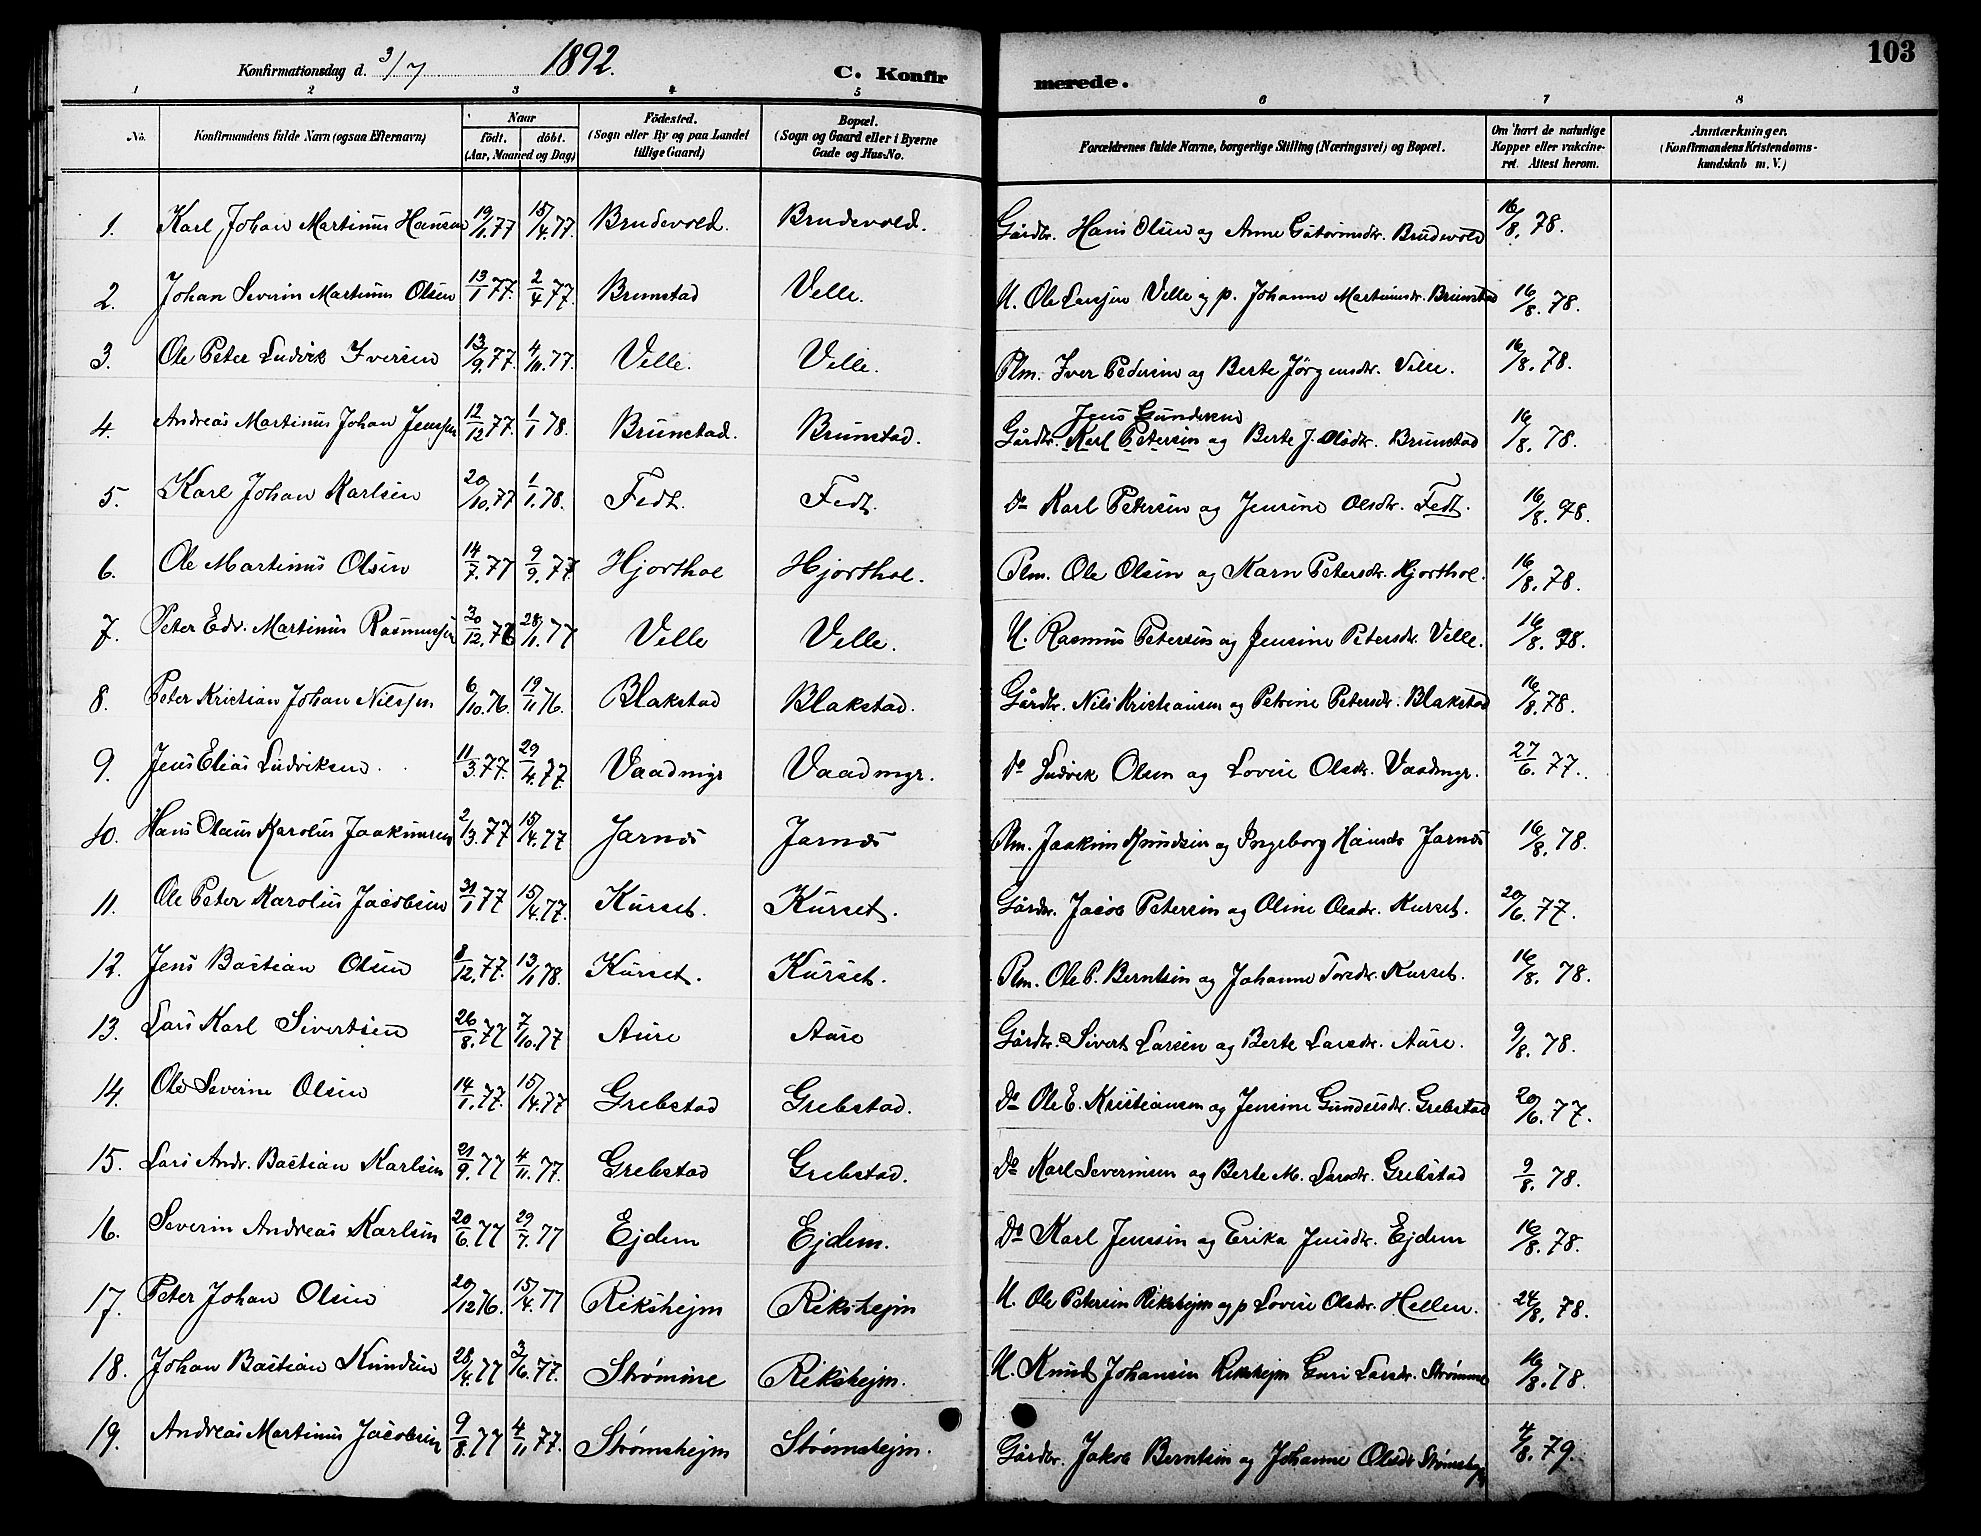 103
Konfirmationsdag d. 3/7 1892. C. Konfirmerede.
1 2 3 4 5 6 7 8
No. Konfirmandens fulde Navn (ogsaa Efternavn) Naar födt. döbt. (Aar, Maaned og Dag) Födested. (Sogn eller By og paa Landet tillige Gaard) Bopæl. (Sogn og Gaard eller i Byerne Gade og Hus-No. Forældrenes fulde Navne, borgerlige Stilling (Næringsvei) og Bopæl. Om havt de naturlige Kopper eller vakcineret. Attest herom. Anmærkninger. (Konfirmandens Kristendomskundskab m. V.)
1. Karl Johan Martinus Hansen 19/1.77 15/4.77. Brudevold. Brudevold. Gårdbr. Hans Olsen og Anne Gutormsdtr. Brudevold 16/8.78.
2. Johan Severin Martinus Olsen 13/1 77. 2/4 77. Brunstad Velle. U. Ole Larsen Velle og p. Johanne Martinusdr. Brunstad 16/8.78.
3. Ole Peter Ludvik Iversen 13/9.77. 4/11.77. Velle. Velle. Plm. Iver Pedersen og Berte Jörgensdtr. Velle. 16/8.78.
4. Andreas Martinus Johan Jenssen 12/12 77. 1/1 78. Brunstad. Brunstad. Gårdbr. Karl Petersen Jens Gundersen og Berte J. Olsdtr. Brunstad 16/8.78.
5. Karl Johan Karlsen 20/10.77 1/1.78. Fedt. Fedt. Do Karl Petersen og Jensine Olsdtr. Fedt. 16/8.78.
6. Ole Martinus Olsen 14/7.77 9/9.77 Hjorthol Hjorthol. Plm. Ole Olsen og Karn Petersdtr. Hjorthol. 16/8.78.
7. Peter Edv. Martinus Rasmussen 30/12.76 28/1.77 Velle Velle. U. Rasmus Petersen og Jensine Petersdtr. Velle. 16/8.78.
8. Peter Kristian Johan Nilssen 6/10.76. 19/11 76. Blakstad Blakstad. Gårdbr. Nils Kristiansen og Petrine Petersdtr. Blakstad 16/8.78.
9. Jens Elias Ludviksen. 11/3.77. 29/4.77. Vaadmyr Vaadmyr. Do Ludvik Olsen og Lovise Olsdtr. Vaadmyr. 27/6.77.
10. Hans Olaus Karolus Jaakimsen 2/3.77 15/4.77 Jarnes Jarnes Plm. Jaakim Knudsen og Ingeborg Hansdr Jarnes 16/8.78.
11. Ole Peter Karolius Jacobsen 31/1 77 15/4.77. Kurset. Kurset. Gårdbr. Jacob Petersen og Oline Olsdtr. Kurset. 20/6.77.
12. Jens Bastian Olsen 8/12.77. 13/1 78. Kurset. Kurset. Plm. Ole P. Berntsen og Johanne Toredr. Kurset. 16/8.78.
13. Lars Karl Sivertsen 26/8.77 7/10.77 Aure Aure Gårdbr. Sivert Larsen og Berte Larsdtr. Aure. 9/8.78.
14. Ole Severin Olsen 14/1.77. 15/4.77 Grebstad Grebstad. Do Ole E. Kristiansen og Jensine Gundersdr. Grebstad 20/6.77.
15. Lars Andr. Bastian Karlsen 21/9.77 4/11.77. Grebstad Grebstad. Do Karl Severinsen og Berte M. Larsdtr. Grebstad 9/8.78.
16. Severin Andreas Karlsen 20/6.77 29/7.77 Ejdem Ejdem. Do Karl Jenssen og Erika Jensdtr. Ejdem 16/8.78.
17. Peter Johan Olsen 20/12 76. 15/4.77 Rikshejm Rikshejm U. Ole Petersen Rikshejm og p Lovise Olsdtr. Hellen. 24/8.78.
18. Johan Bastian Knudsen 28/4.77 3/6.77. Strømme Rikshejm. U. Knud Johansen Rikshejm Guri Larsdr. Strømme 16/8.78.
19. Andreas Martinus Jacobsen 9/8.77 4/11 77. Strømshejm Strømshejm. Gårdbr. Jakob Berntsen og Johanne Olsdtr Strømshejm 4/8.79.